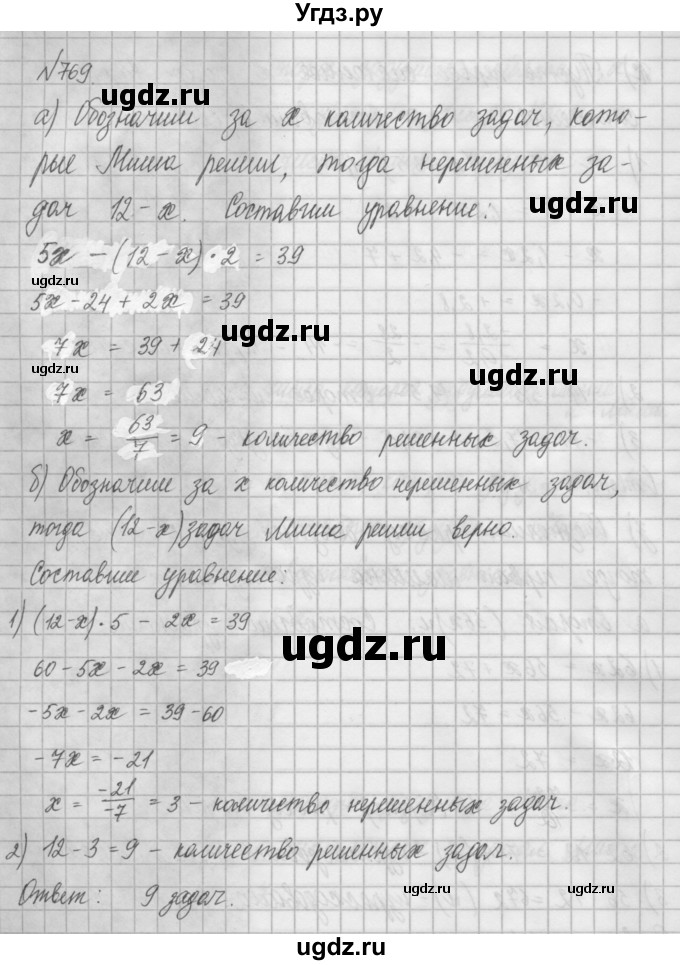 Угдз.ру
№769.
ugdz.ru
а) Обозначим за x количество задач, кото-
рые Миша решил, тогда нерешенных за-
дач 12 - x. Составим уравнение:
ugdz.ru
5x - (12 - x) · 2 = 39
ugdz.ru
5x - 24 + 2x = 39
ugdz.ru
7x = 39 + 24
ugdz.ru
ugdz.ru
7x = 63
x = 63/7 = 9 - количество решенных задач.
б) Обозначим за x количество нерешенных задач,
тогда (12-x) задач Миша решил верно.
Составим уравнение:
1) (12-x) · 5 - 2x = 39
ugdz.ru
60 - 5x - 2x = 39
-5x - 2x = 39 - 60
-7x = -21
x = -21/-7 = 3 - количество нерешенных задач.
2) 12 - 3 = 9 - количество решенных задач.
Ответ: 9 задач.
ugdz.ru
ugdz.ru
ugdz.ru